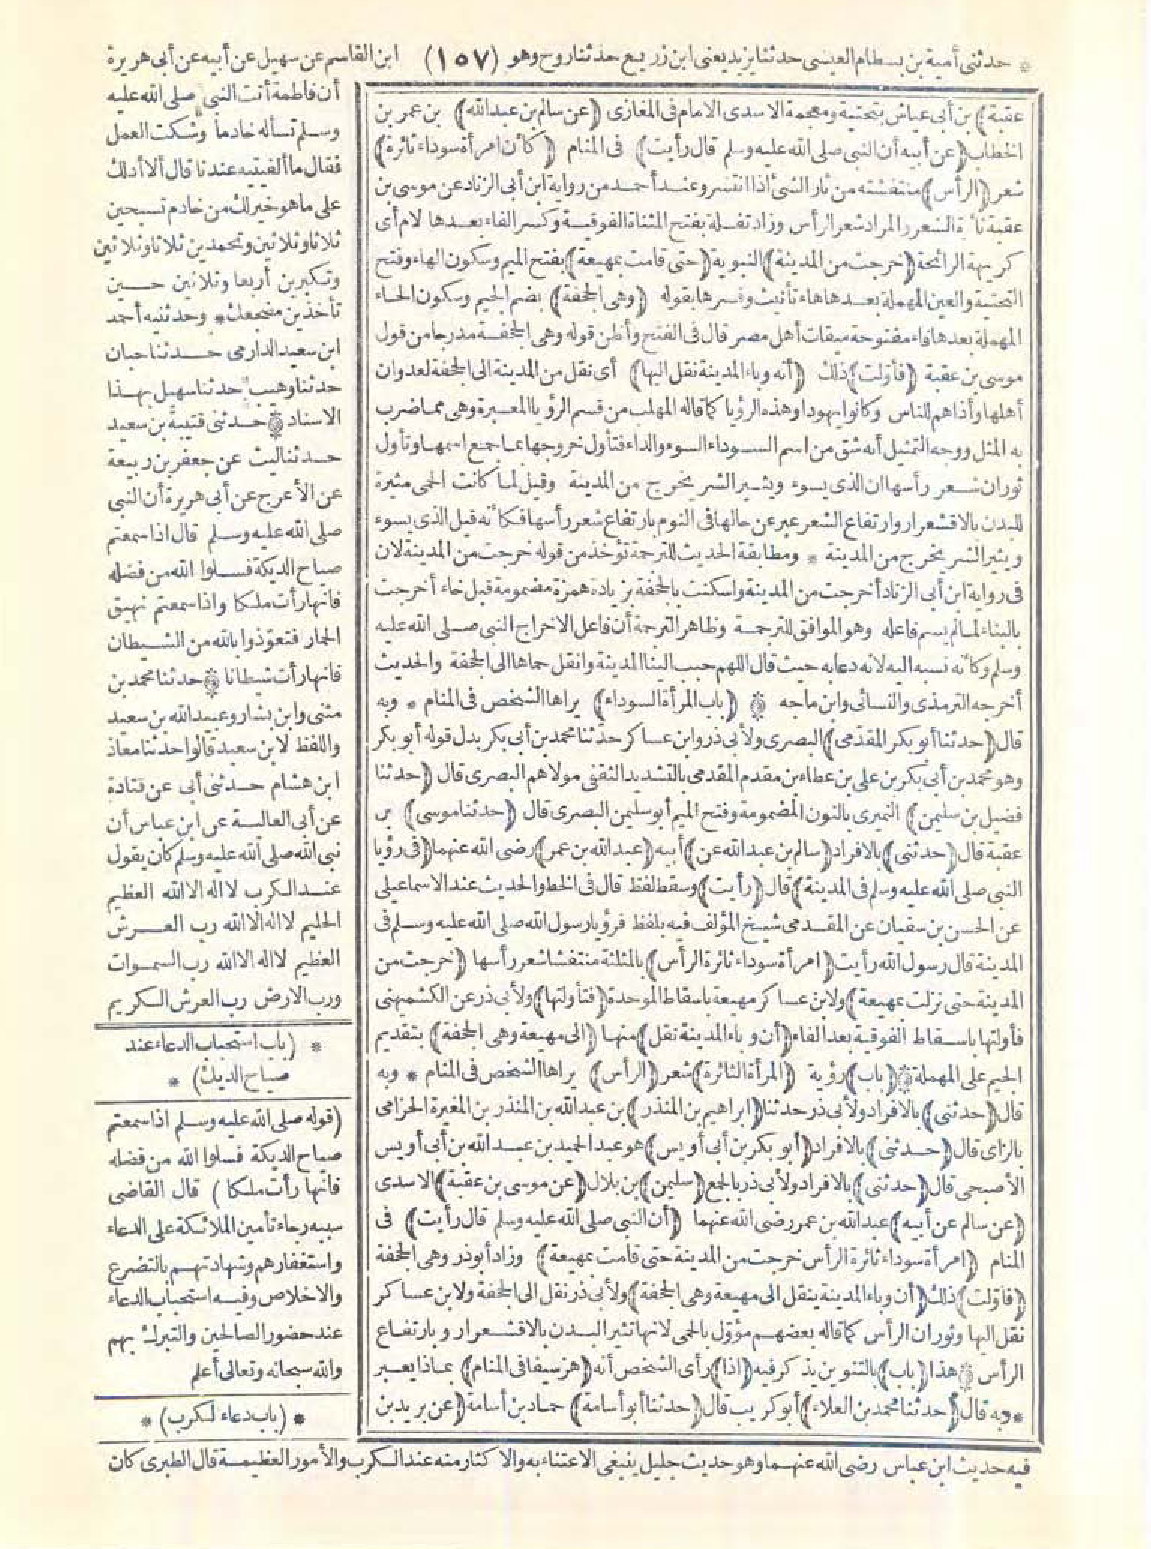 * حدثني أمية بن بسطام العيشى حدثنا يزيد يعنى ابن زريع حدثنا روح وهو (١٥٧) ابن القاسم عن سهيل عن أبيه عن أبى هريرة
عقبة) بن أبى عياش بتحتية ومعجمة الاسدى الامام فى المغازى (عن سالم بن عبدالله) بن عمر بن
الخطاب (عن أبيه أن النبى صلى الله عليه وسلم قال رأيت) فى المنام (كأن امرأة سوداء ثائرة)
شعر (الرأس) منتفشته من ثار الشئ اذا انتشر وعند أحمد من رواية ابن أبى الزناد عن موسى بن
عقبة ثائرة الشعر والمراد شعر الرأس وزاد تفلة بفتح المثناة الفوقية وكسر الفاء بعدها لام أى
كريهة الرائحة (خرجت من المدينة) النبوية (حتى قامت بمهيعة) بفتح الميم وسكون الهاء وفتح
التحتية والعين المهملة بعدها هاء تأنيث وفسرها بقوله (وهى الجحفة) بضم الجيم وسكون الحاء
المهملة بعدها فاء مفتوحة ميقات أهل مصر قال فى الفتح وأظن قوله وهى الجحفة مدرجا من قول
موسى بن عقبة (فأولت) ذلك (أنه وباء المدينة نقل اليها) أى نقل من المدينة الى الجحفة لعدوان
أهلها وأذاهم للناس وكانوا يهودا وهذه الرؤيا كما قاله المهلب من قسم الرؤيا المعبرة وهى مما ضرب
به المثل ووجه التمثيل أنه شق من اسم السوداء السوء والداء فتأول خروجها بما جمع اسمها وتأول
ثوران شعر رأسها ان الذى يسوء ويثير الشر يخرج من المدينة وقيل لما كانت الحمى مثيرة
للبدن بالاقشعرار وارتفاع الشعر عبر عن حالها فى النوم بارتفاع شعر رأسها فكأنه قيل الذى يسوء
ويثير الشر يخرج من المدينة * ومطابقة الحديث للترجمة تؤخذ من قوله خرجت من المدينة لان
فى رواية ابن أبى الزناد أخرجت من المدينة واسكنت بالجحفة بزيادة همزة مضمومة قبل خاء أخرجت
بالبناء لما لم يسم فاعله وهو الموافق للترجمة وظاهر الترجمة أن فاعل الاخراج النبى صلى الله عليه
وسلم وكأنه نسبه اليه لانه دعا به حيث قال اللهم حبب الينا المدينة وانقل حماها الى الجحفة والحديث
أخرجه الترمذى والنسائى وابن ماجه * (باب المرأة السوداء) يراها الشخص فى المنام * وبه
قال (حدثنا أبو بكر المقدمى) البصرى ولأبى ذر وابن عساكر حدثنا محمد بن أبى بكر بدل قوله أبو بكر
وهو محمد بن أبى بكر بن على بن عطاء بن مقدم المقدمى بالتشديد الثقفى مولاهم البصرى قال (حدثنا
فضيل بن سليمن) النميرى بالنون المضمومة وفتح الميم أبو سليمن البصرى قال (حدثنا موسى) بن
عقبة قال (حدثنى) بالافراد (سالم بن عبدالله عن) أبيه (عبدالله بن عمر) رضى الله عنهما (فى رؤيا
النبى صلى الله عليه وسلم فى المدينة) قال (رأيت) وسقط لفظ قال فى الخط والحديث عند الاسماعيلى
عن الحسن بن سفيان عن المقدمى شيخ المؤلف فيه بلفظ فى رؤيا رسول الله صلى الله عليه وسلم فى
المدينة قال رسول الله رأيت (امرأة سوداء ثائرة الرأس) بالمثلثة منتفشا شعر رأسها (خرجت من
المدينة حتى نزلت بمهيعة) ولابن عساكر مهيعة باسقاط الموحدة (فتأولتها) ولأبى ذر عن الكشميهنى
فأولتها باسقاط الفوقية بعد الفاء (أن وباء المدينة نقل) منها (الى مهيعة وهى الجحفة) بتقديم
الجيم على المهملة * (باب) رؤية (المرأة الثائرة) شعر (الرأس) يراها الشخص فى المنام * وبه
قال (حدثنى) بالافراد ولأبى ذر حدثنا (ابراهيم بن المنذر) بن عبدالله بن المنذر بن المغيرة الحزامى
بالزاى قال (حدثنى) بالافراد (أبو بكر بن أبى أويس) هو عبد الحميد بن عبدالله بن أبى أويس
الأصبحى قال (حدثنى) بالافراد ولأبى ذر بالجمع (سليمن) بن بلال (عن موسى بن عقبة) الاسدى
(عن سالم عن أبيه) عبدالله بن عمر رضى الله عنهما (أن النبى صلى الله عليه وسلم قال رأيت) فى
المنام (امرأة سوداء ثائرة الرأس خرجت من المدينة حتى قامت بمهيعة) وزاد أبو ذر وهى الجحفة
(فأولت) ذلك (أن وباء المدينة ينقل الى مهيعة وهى الجحفة) ولأبى ذر نقل الى الجحفة ولابن عساكر
نقل اليها وثوران الرأس كما قاله بعضهم مؤول بالحمى لانها تثير البدن بالاقشعرار وبارتفاع
الرأس * هذا (باب) بالتنوين يذكر فيه (اذا) رأى الشخص أنه (هز سيفا فى المنام) بماذا يعبر
* وبه قال (حدثنا محمد بن العلاء) أبو كريب قال (حدثنا أبو أسامة) حماد بن أسامة (عن بريد بن
أن فاطمة أتت النبى صلى الله عليه
وسلم تسأله خادما وشكت العمل
فقال ما ألفيتيه عندنا قال ألا أدلك
على ما هو خير لك من خادم تسبحين
ثلاثا وثلاثين وتحمدين ثلاثا وثلاثين
وتكبرين أربعا وثلاثين حين
تأخذين مضجعك * وحدثنيه أحمد
ابن سعيد الدارمى حدثنا حبان
حدثنا وهيب حدثنا سهيل بهذا
الاسناد * حدثنى قتيبة بن سعيد
حدثنا ليث عن جعفر بن ربيعة
عن الأعرج عن أبى هريرة أن النبى
صلى الله عليه وسلم قال اذا سمعتم
صياح الديكة فسلوا الله من فضله
فانها رأت ملكا واذا سمعتم نهيق
الحمار فتعوذوا بالله من الشيطان
فانها رأت شيطانا * حدثنا محمد بن
مثنى وابن بشار وعبيد الله بن سعيد
واللفظ لابن سعيد قالوا حدثنا معاذ
ابن هشام حدثنى أبى عن قتادة
عن أبى العالية عن ابن عباس أن
نبى الله صلى الله عليه وسلم كان يقول
عند الكرب لا اله الا الله العظيم
الحليم لا اله الا الله رب العرش
العظيم لا اله الا الله رب السموات
ورب الارض رب العرش الكريم
* (باب استحباب الدعاء عند
صياح الديك) *
(قوله صلى الله عليه وسلم اذا سمعتم
صياح الديكة فسلوا الله من فضله
فانها رأت ملكا) قال القاضى
سببه رجاء تأمين الملائكة على الدعاء
واستغفارهم وشهادتهم بالتضرع
والاخلاص وفيه استحباب الدعاء
عند حضور الصالحين والتبرك بهم
والله سبحانه وتعالى أعلم
* (باب دعاء الكرب) *
فيه حديث ابن عباس رضى الله عنهما وهو حديث جليل ينبغى الاعتناء به والاكثار منه عند الكرب والأمور العظيمة قال الطبرى كان